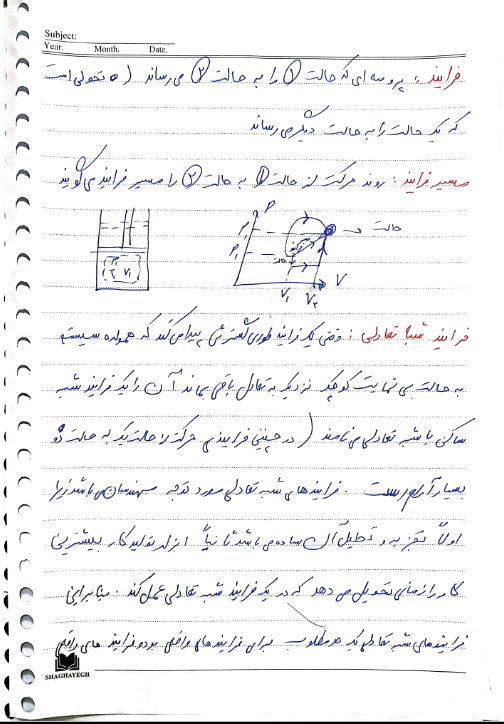 Subject:
Year. Month. Date.
فرایند : پروسه ای که حالت ① را به حالت ② می رساند ( ه تحولی است
که یک حالت را به حالت دیگر می رساند
مسیر فرایند : روند حرکت از حالت ① به حالت ② را مسیر فرایند می گویند
P
حالت ۲
P۲
P۱
V۱ V۲ V
فرایند شبه تعادلی : وقتی یک فرایند طوری گسترش پیدا می کند که همواره سیستم
به حالت بی نهایت کوچک نزدیک به تعادل باقی بماند آن را یک فرایند شبه
ساکن یا شبه تعادلی می نامند ( در چنین فرایندی حرکت از حالت یک به حالت دو
بسیار آرام است . فرایندهای شبه تعادلی مورد توجه مهندسان می باشد زیرا
اولاً تجزیه و تحلیل آن ساده می باشد ثانیاً ابزار تولید کار بیشترین
کار را زمانی تحویل می دهد که در یک فرایند شبه تعادلی عمل کند . بنابراین
فرایندهای شبه تعادلی یک حد مطلوب برای فرایندهای واقعی بوده و فرایندهای واقعی
SHAGHAYEGH